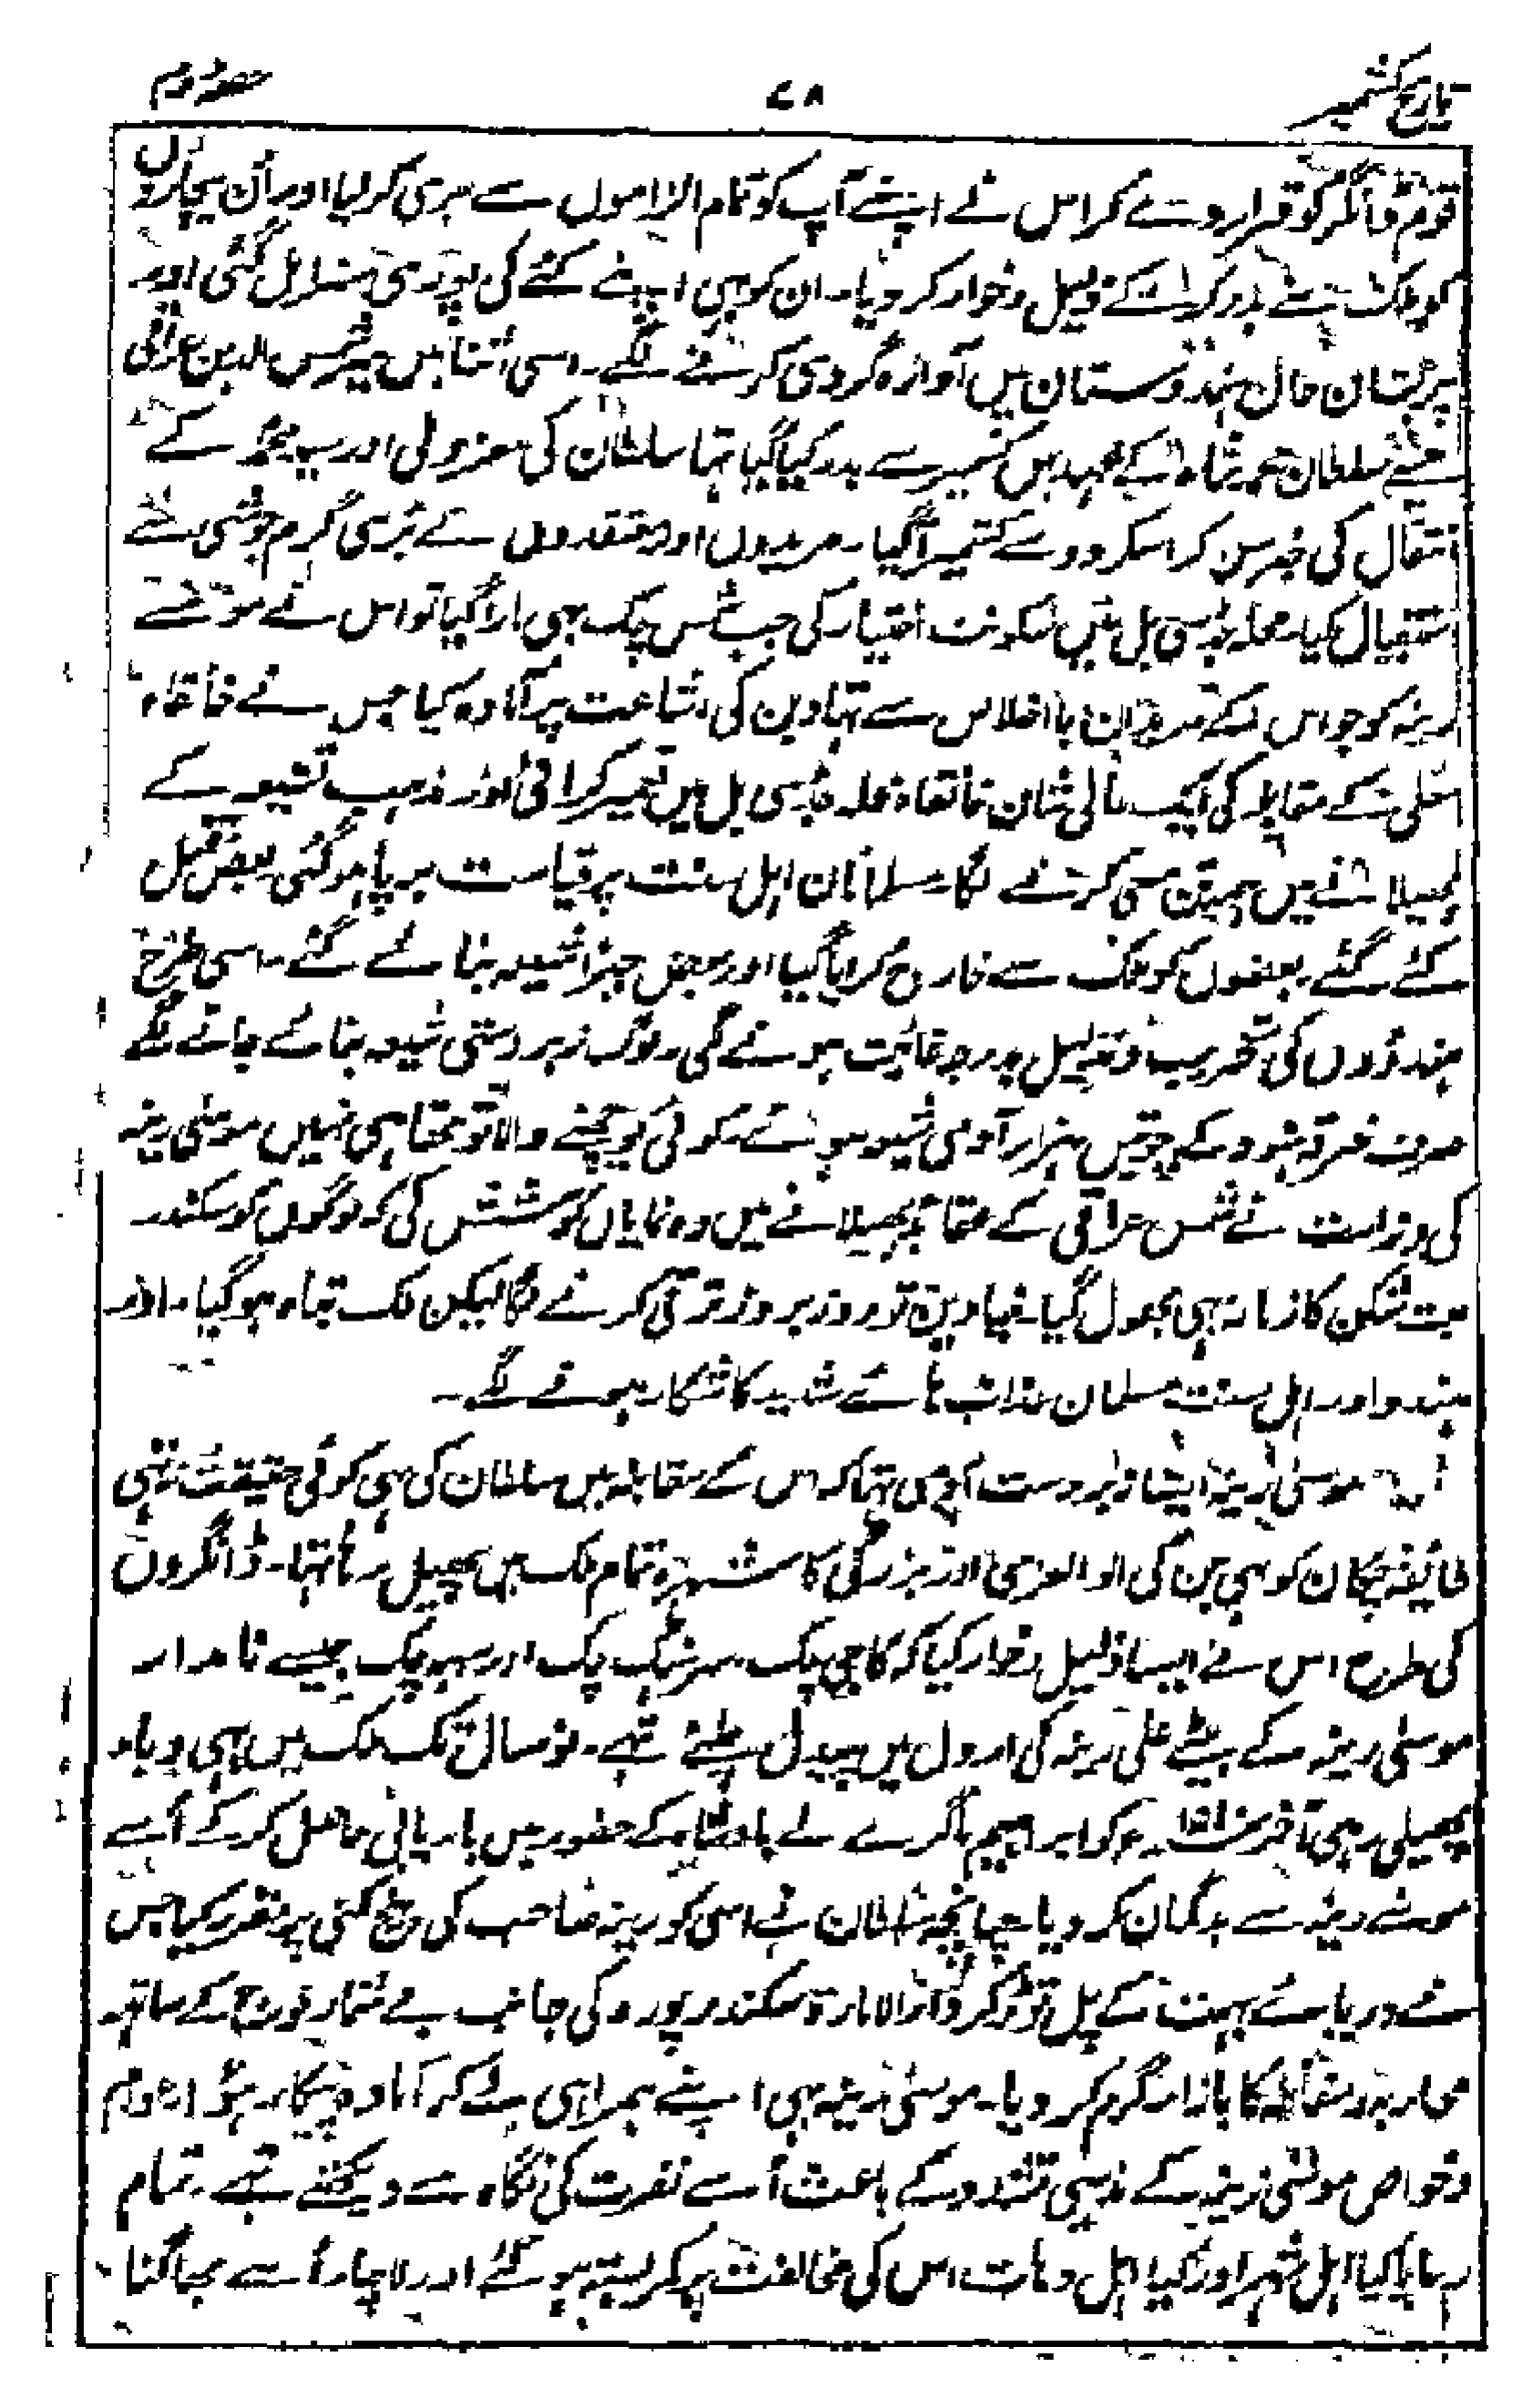 تاریخ کشمیر ۷۸ حصہ دوم
قوم ڈانگر کو قرار دے کر اس نے اپنے آپ کو تمام الاموں سے بری کر لیا اور اُن بیچاروں
کو ملک سے بدر کرا کے ذلیل و خوار کر دیا۔ ان کو بہی اپنے کئے کی پوری سزا مل گئی اور
پریشان حال ہندوستان میں آوارہ گردی کرنے لگے۔ اسی اثنا میں میر شمس الدین عراقی
جسے سلطان محمد شاہ کے عہد میں کشمیر سے بدر کیا گیا تہا سلطان کی معزولی اور سید محمد کے
انتقال کی خبر سن کر اسکردو سے کشمیر آگیا۔ مریدوں اور معتقدوں نے بڑی گرم جوشی سے
استقبال کیا۔ محلہ جڈی بل میں سکونت اختیار کی جب شمس چک بہی مارا گیا تو اس نے موسٰے
رینہ کو جو اس کے مریدان با اخلاص سے تہا دین کی اشاعت پر آمادہ کیا جس نے خانقاہ
معلٰی کے مقابلہ کی ایک عالی شان خانقاہ محلہ جڈی بل میں تعمیر کرائی اور مذہب تشیع کے
پھیلانے میں ہمہ تن سعی کرنے لگا۔ مسلمانان اہل سنت پر قیامت برپا ہو گئی بعض قتل
کئے گئے بعضوں کو ملک سے خارج کرایا گیا اور بعض جبراً شیعہ بنائے گئے۔ اسی طرح
ہندوؤں کی تخریب و تذلیل بدرجہ غایت ہونے لگی۔ لوگ زبردستی شیعہ بنائے جانے لگے
صرف فرقہ ہنود کے چوبیس ہزار آدمی شیعہ ہوئے۔ کوئی پوچہنے والا تو تھا ہی نہیں موسٰی رینہ
کی وزارت نے شمس عراقی کے عقائد پھیلانے میں وہ نمایاں کوشش کی کہ لوگوں کو سکندر
بت شکن کا زمانہ بہی بھول گیا۔ نیا دین تو روز بروز ترقی کرنے لگا لیکن ملک تباہ ہو گیا۔ اور
ہندو اور اہل سنت مسلمان عذاب ہائے شدید کا شکار ہونے لگے۔
موسٰی رینہ ایسا زبردست آدمی تہا کہ اس کے مقابلہ میں سلطان کی بہی کوئی حقیقت نہ تہی
طائفہ چکان کو بہی جن کی اوالعزمی اور بزرگی کا شہرہ تمام ملک میں پھیل رہا تہا۔ ڈانگروں
کی طرح اس نے ایسا ذلیل و خوار کیا کہ کاجی چک سرہنگ چک اور سپہ چک جیسے نامدار
موسٰی رینہ کے بیٹے علی رینہ کی اردل میں پیدل چلتے تہے۔ نو سال تک ملک میں یہی وبا
پھیلی رہی آخر ملک ابراہیم ماگرے نے بادشاہ کے حضور میں باریابی حاصل کر کے اُسے
موسٰے رینہ سے بدگمان کر دیا۔ چنانچہ سلطان نے اسی کو رینہ صاحب کی بیخ کنی پر مقرر کیا جس
نے دریائے بہت کے پل توڑ کر دارالامارۃ سکندر پورہ کی جانب بے شمار فوج کے ساتہہ
محاربہ و مقاتلہ کا بازار گرم کر دیا۔ موسٰی رینہ بہی اپنے ہمراہی لے کر آمادہ پیکار ہوا۔ عوام
و خواص موسٰی رینہ کے مذہبی تشدد کے باعث اُسے نفرت کی نگاہ سے دیکہتے تہے۔ تمام
رعایا کیا اہل شہر اور کیا اہل دہات اس کی مخالفت پر کمربستہ ہو گئے اور لاچار اُسے بھاگنا